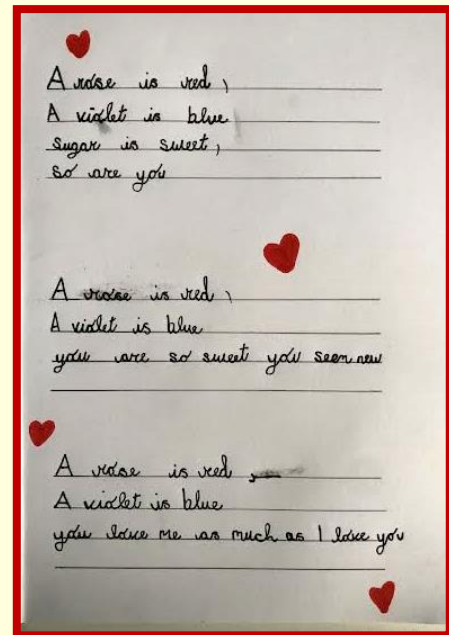 A rose is red,
A violet is blue
sugar is sweet,
so are you
A rose is red,
A violet is blue
you are so sweet you seem new
A rose is red,
A violet is blue
you love me as much as I love you